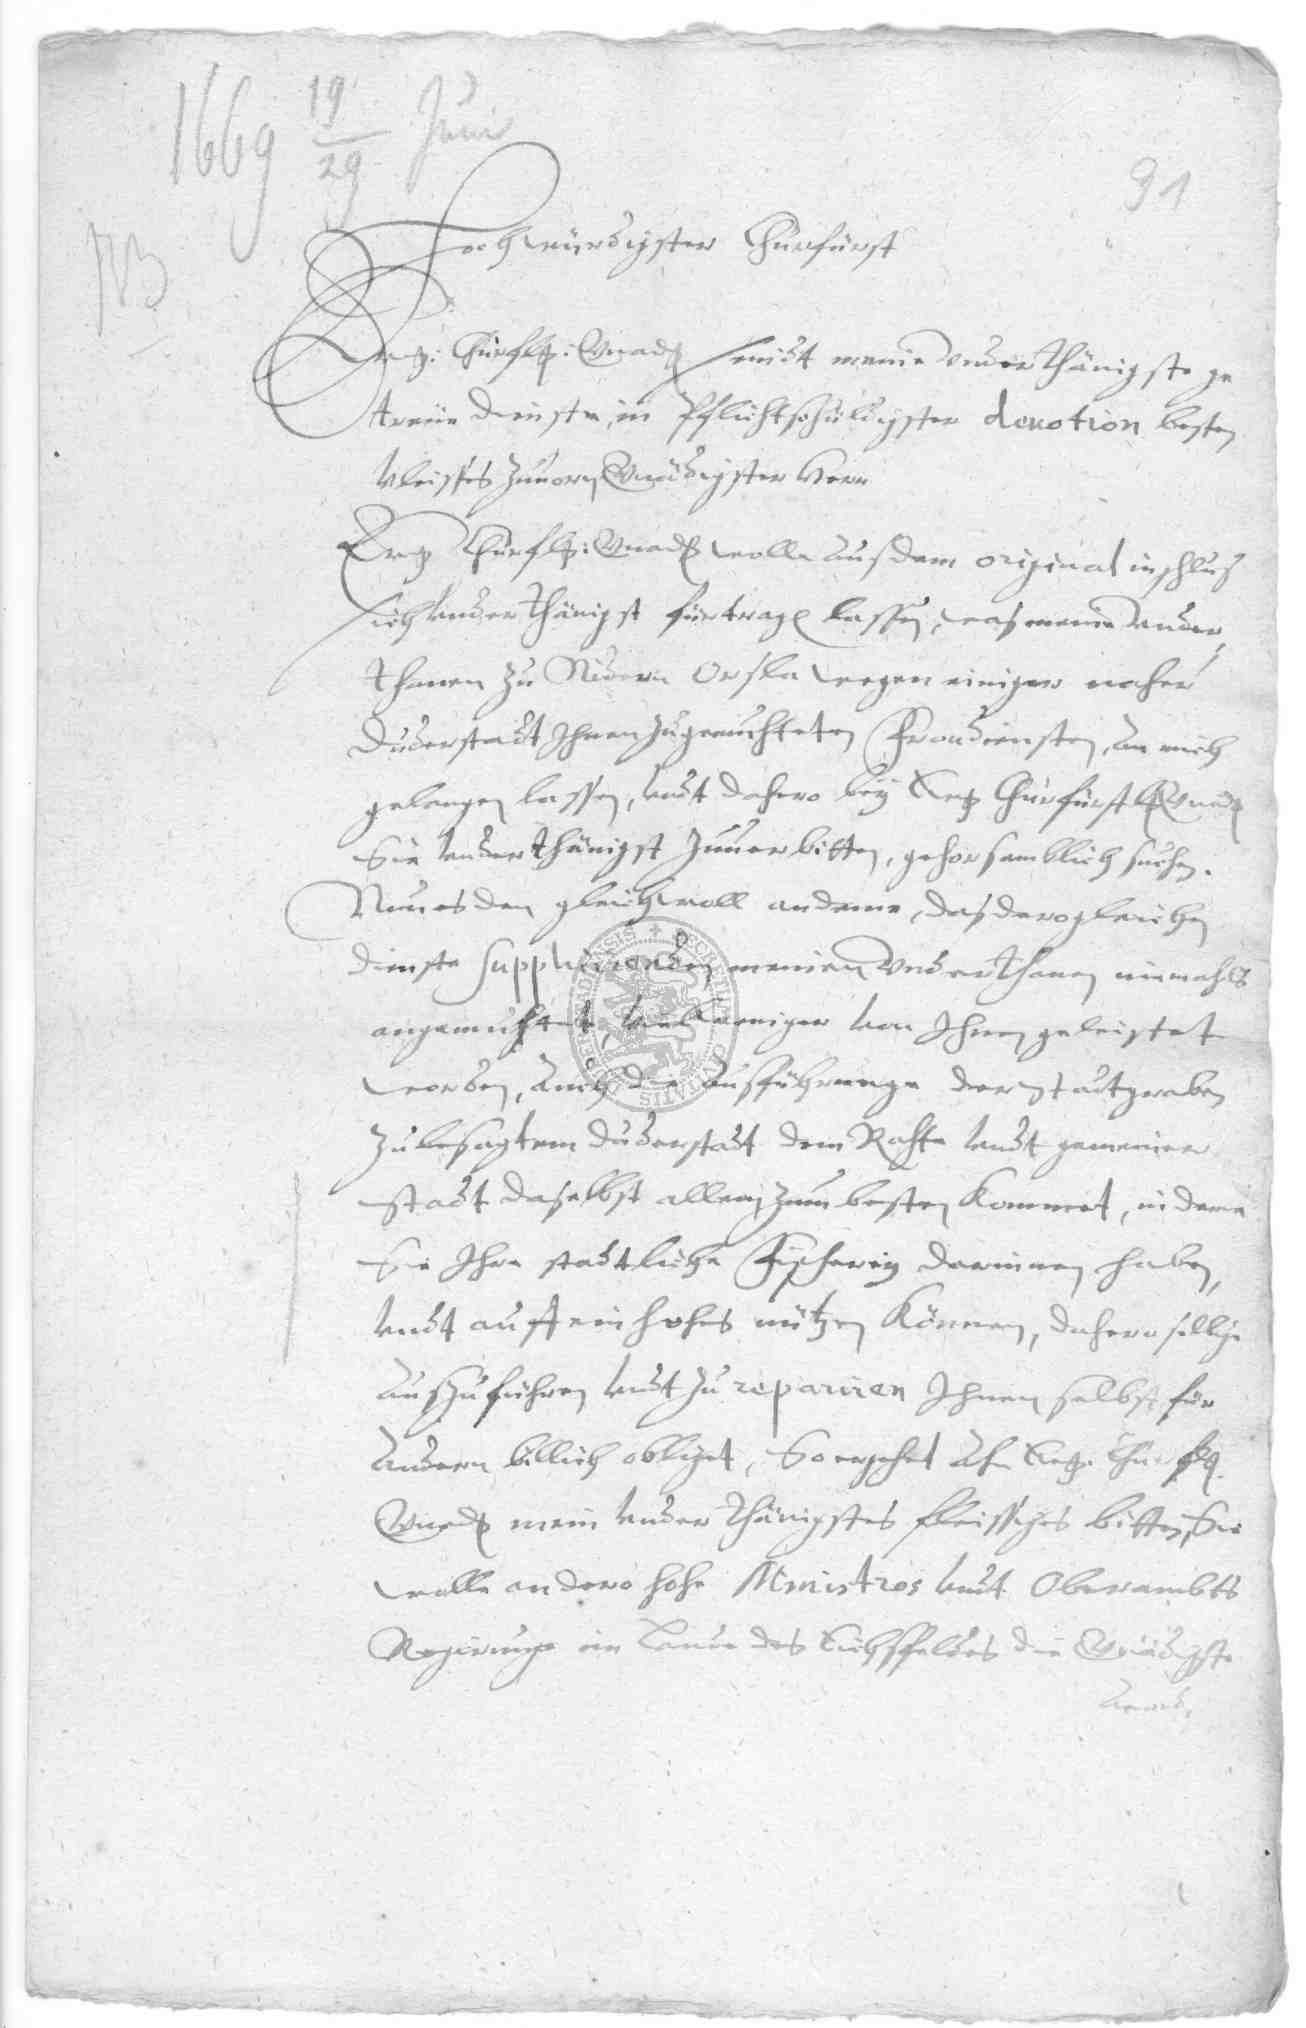 1669 19/29 Juni
91
NB
Hochwürdigster Churfürst
Ew: Churfl: Gnad seindt meine underthänigste ge
treüe dienste, in Pflichtschuldigster devotion besten
vleisses zuvorn Gnädigster Herr
Ew Churfl: Gnad wolle aus dem original inschlus
sich underthänigst fürtragen lassen, was meine under,
thanen zu Nidern Orsla wegen einiger naher
Duderstadt Ihnen zugemuhteten Frondiensten, an mich
gelangen lassen, undt dahero bey Ew Churfürstl Gnad
Sie underthänigst zuverbitten, gehorsamblich suchen.
Nun es den gleichwoll an deme, das dergleichen
dienste Supplicirenden meinen Underthanen niemahls
angemuhtet, viel weniger von Ihnen geleistet
worden, auch die ausführunge der Stadtgraben
zu besagtem Duderstadt dem Rahte undt gemeiner
Stadt daselbst allein zum besten kommet, in deme
Sie Ihre stadtliche Fischerey darinnen haben,
undt auff ein hohes nützen können, dahero selbige
auszuführen undt zu reparijren Ihnen selbst für
andern billich obliget, So ergehet ahn Ew. Churfl.
Gnad mein underthänigstes fleissiges bitten, Sie
wolle an dero hohe Ministros undt Oberambts
Regirunge im Lande des Eichsfeldes die Gnädigste